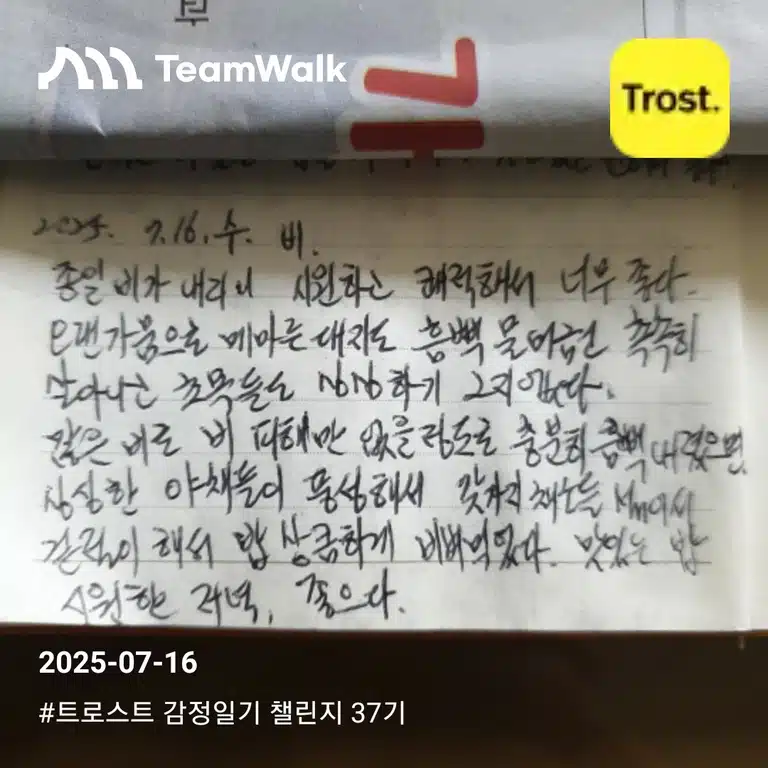 TeamWalk
Trost.
2025. 7.16. 수. 비.
종일 비가 내리니 시원하고 쾌적해서 너무 좋다.
오랜가뭄으로 메마른 대지도 흠뻑 물머금건 촉촉히
살아나는 초목들도 싱싱하기 그지없다.
많은 비로 비 피해만 없을 정도로 충분히 흠뻑 내렸으면
싱싱한 야채들이 풍성해서 갖가지 채소들
해서 밥 상큼하게 비벼먹었다. 맛있는 밥
시원한 저녁, 좋으다.
2025-07-16
#트로스트 감정일기 챌린지 37기